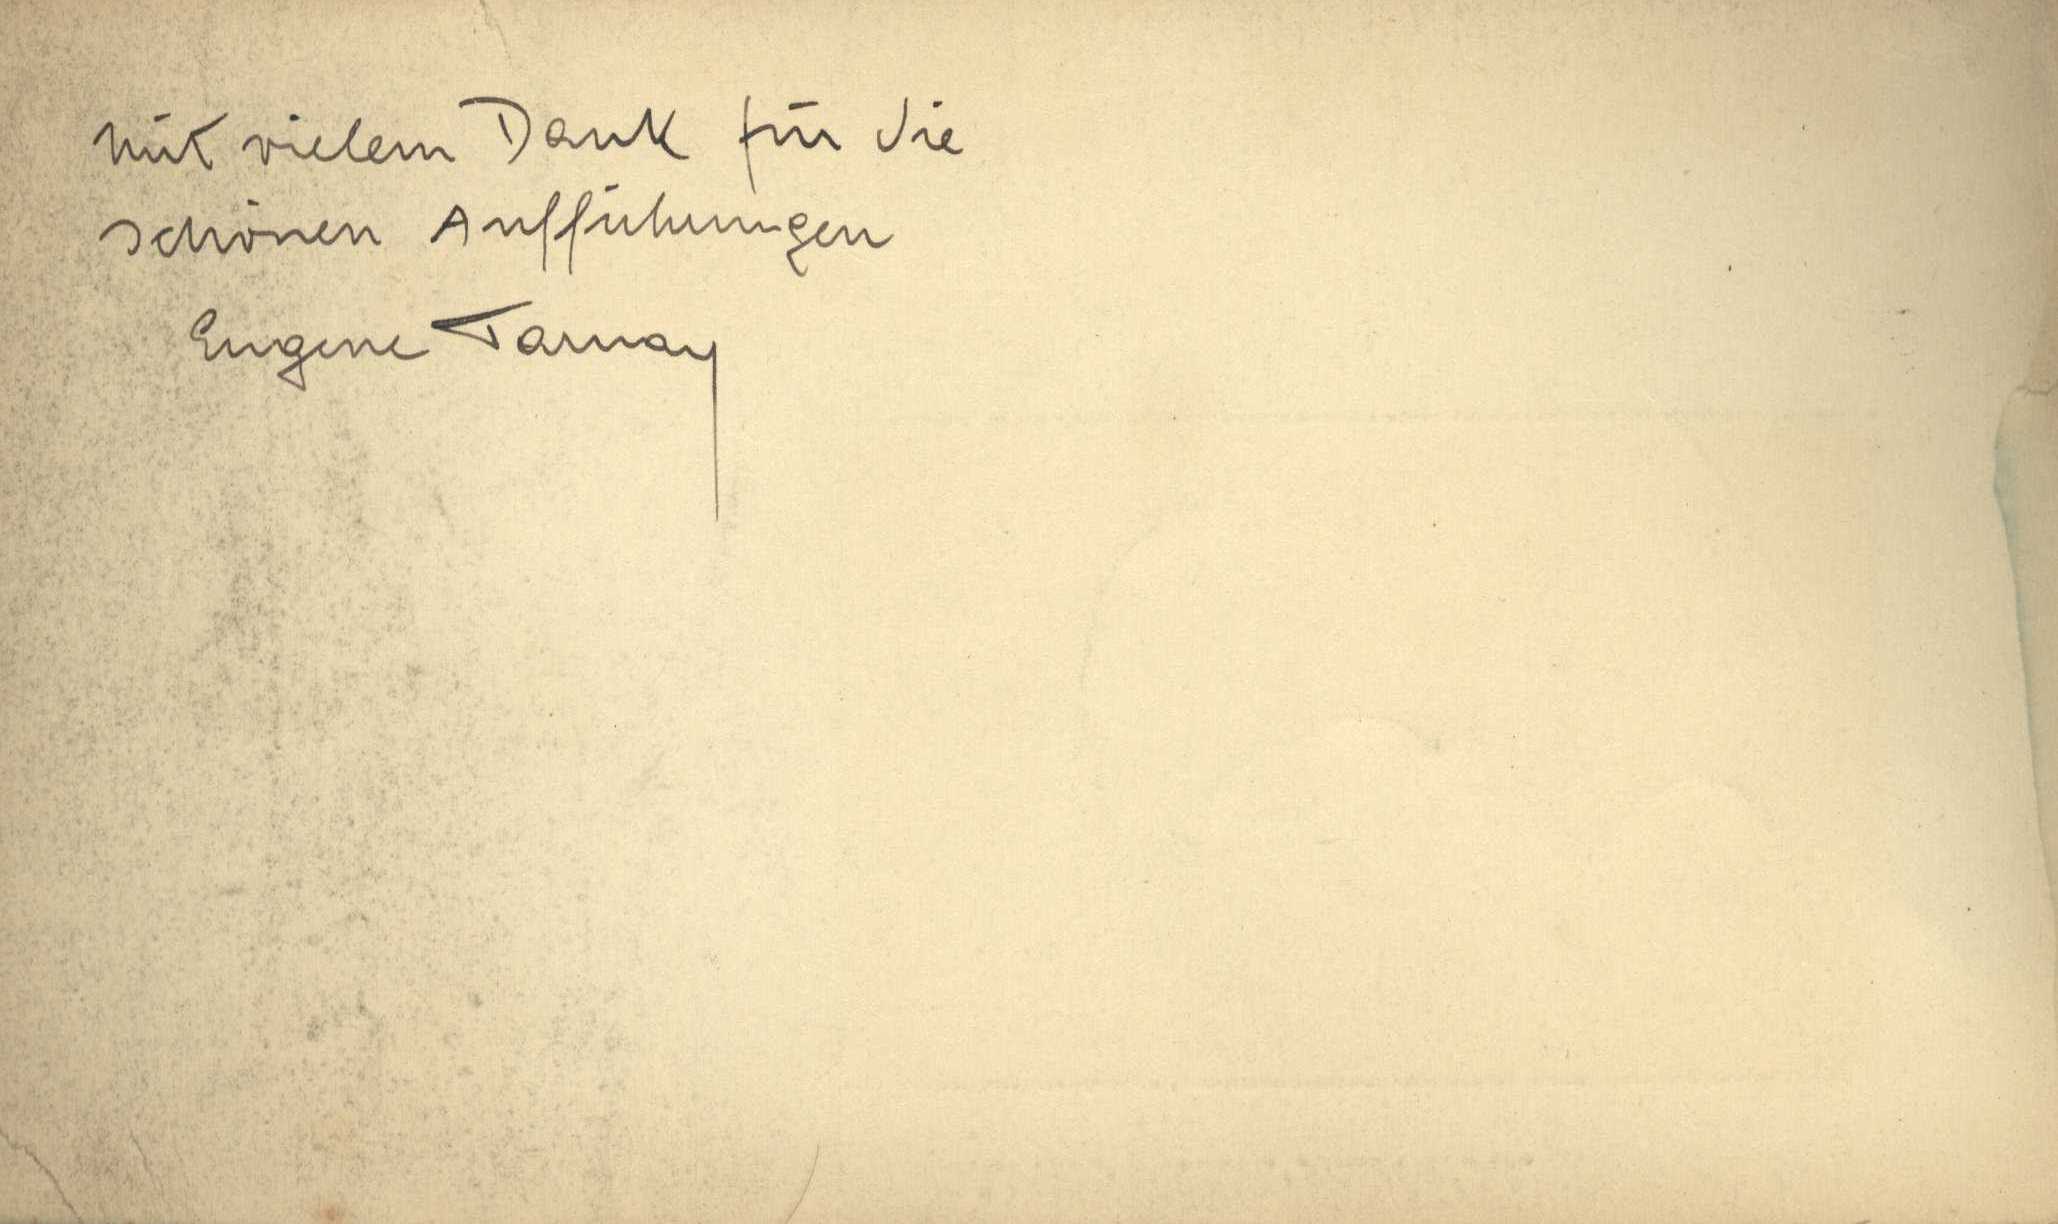 mit vielem Dank für die
schönen Aufführungen
Eugene Tarnay